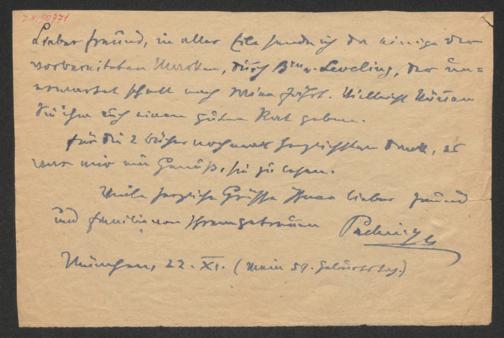 Lieber Freund, in aller Eile sende ich da einige der
vorbereiteten Marken, durch Bar v. Leveling, der
schnell nach fährt. Vielleicht können
Sie ihm auch einen guten Rat geben.
Für die 2 Bücher nochmals herzlichsten Dank, es
war mir ein Genuß, sie zu lesen.
Viele herzliche Grüsse Ihnen lieber Freund
und Familie von Ihrem getreuen
München, 22. XI. (Mein 59. Geburtstag.)